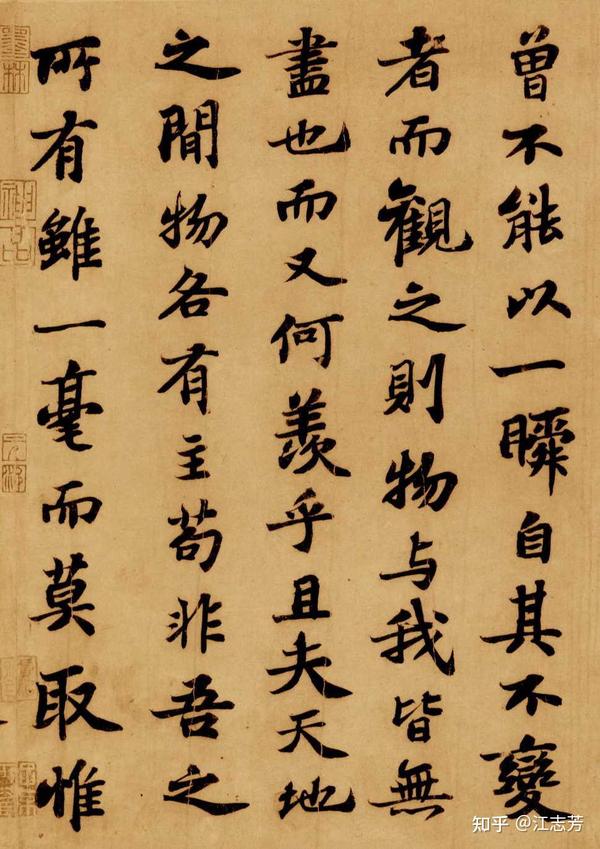 曾不能以一瞬自其不變
者而觀之則物与我皆無
盡也而又何羨乎且夫天地
之間物各有主苟非吾之
所有雖一毫而莫取惟
知乎 @江志芳